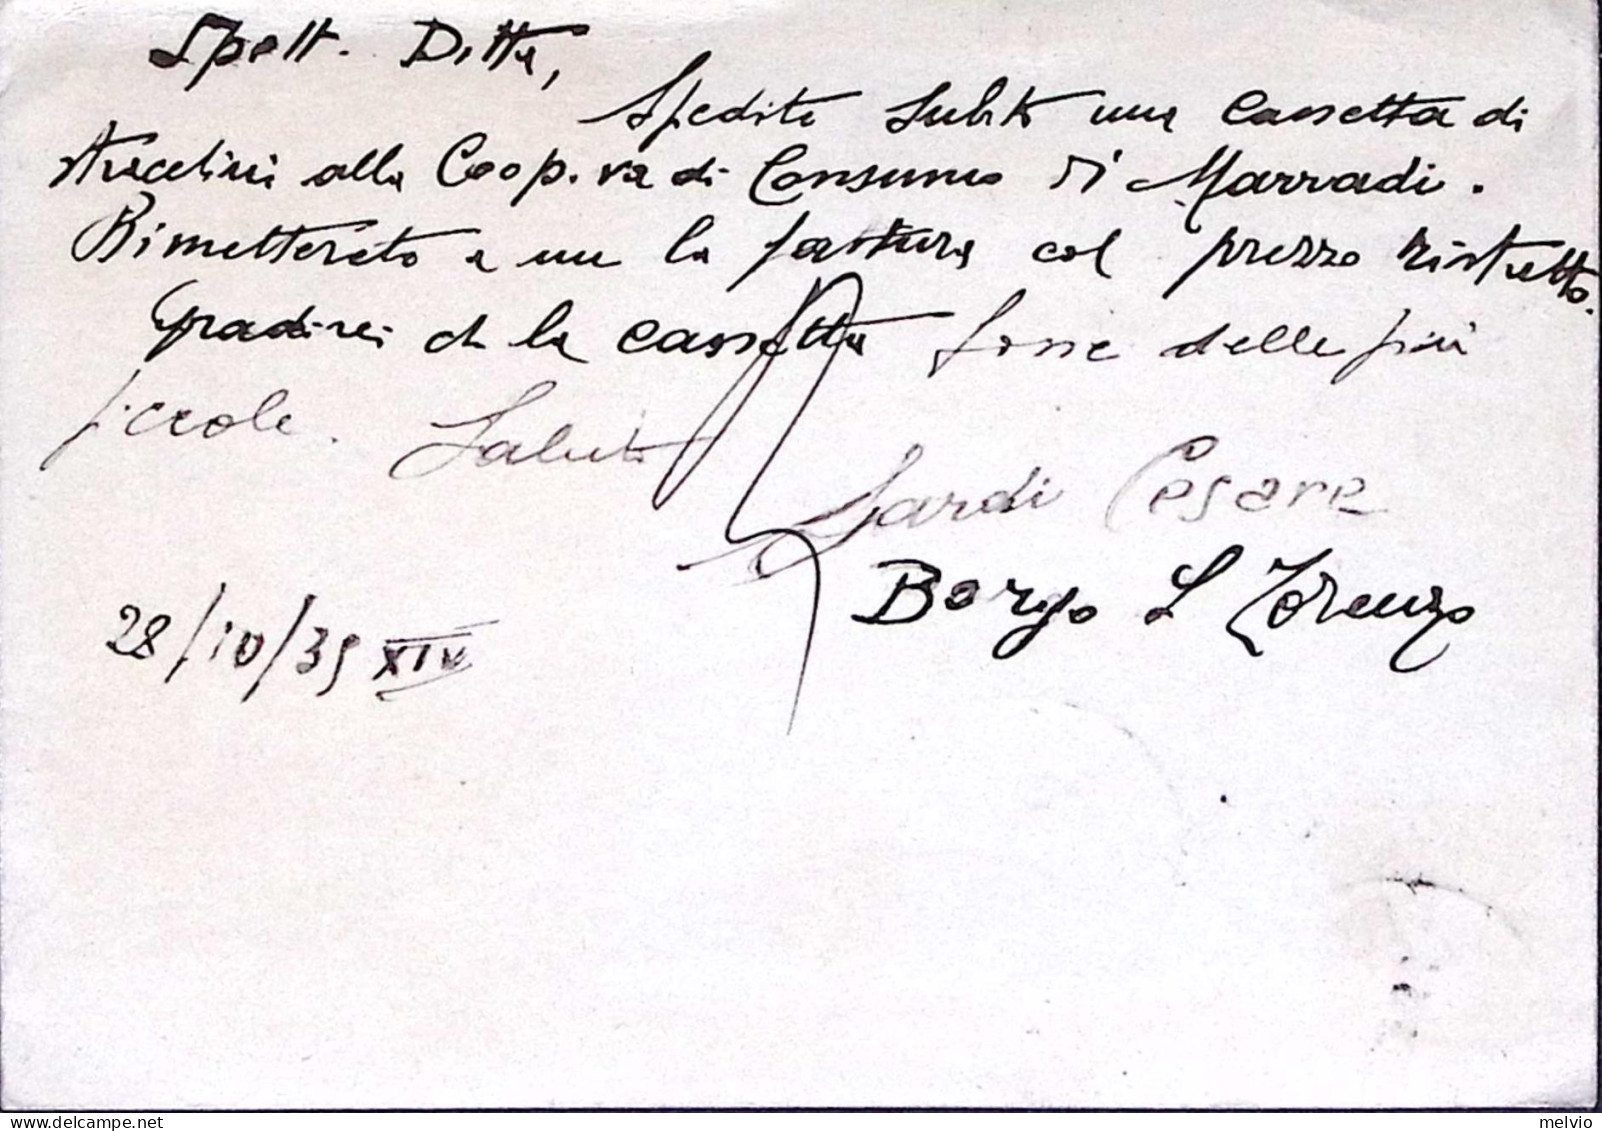 Spett. Ditta,
Spedite subito una cassetta di
alla Coop.va di Consumo di Marradi.
Rimetterete a me la fattura col prezzo ristretto.
Gradirei ch la cassetta fosse delle più
piccole. Saluti
Sardi Cesare
Borgo S Lorenzo
28/10/35 XIV
melvio